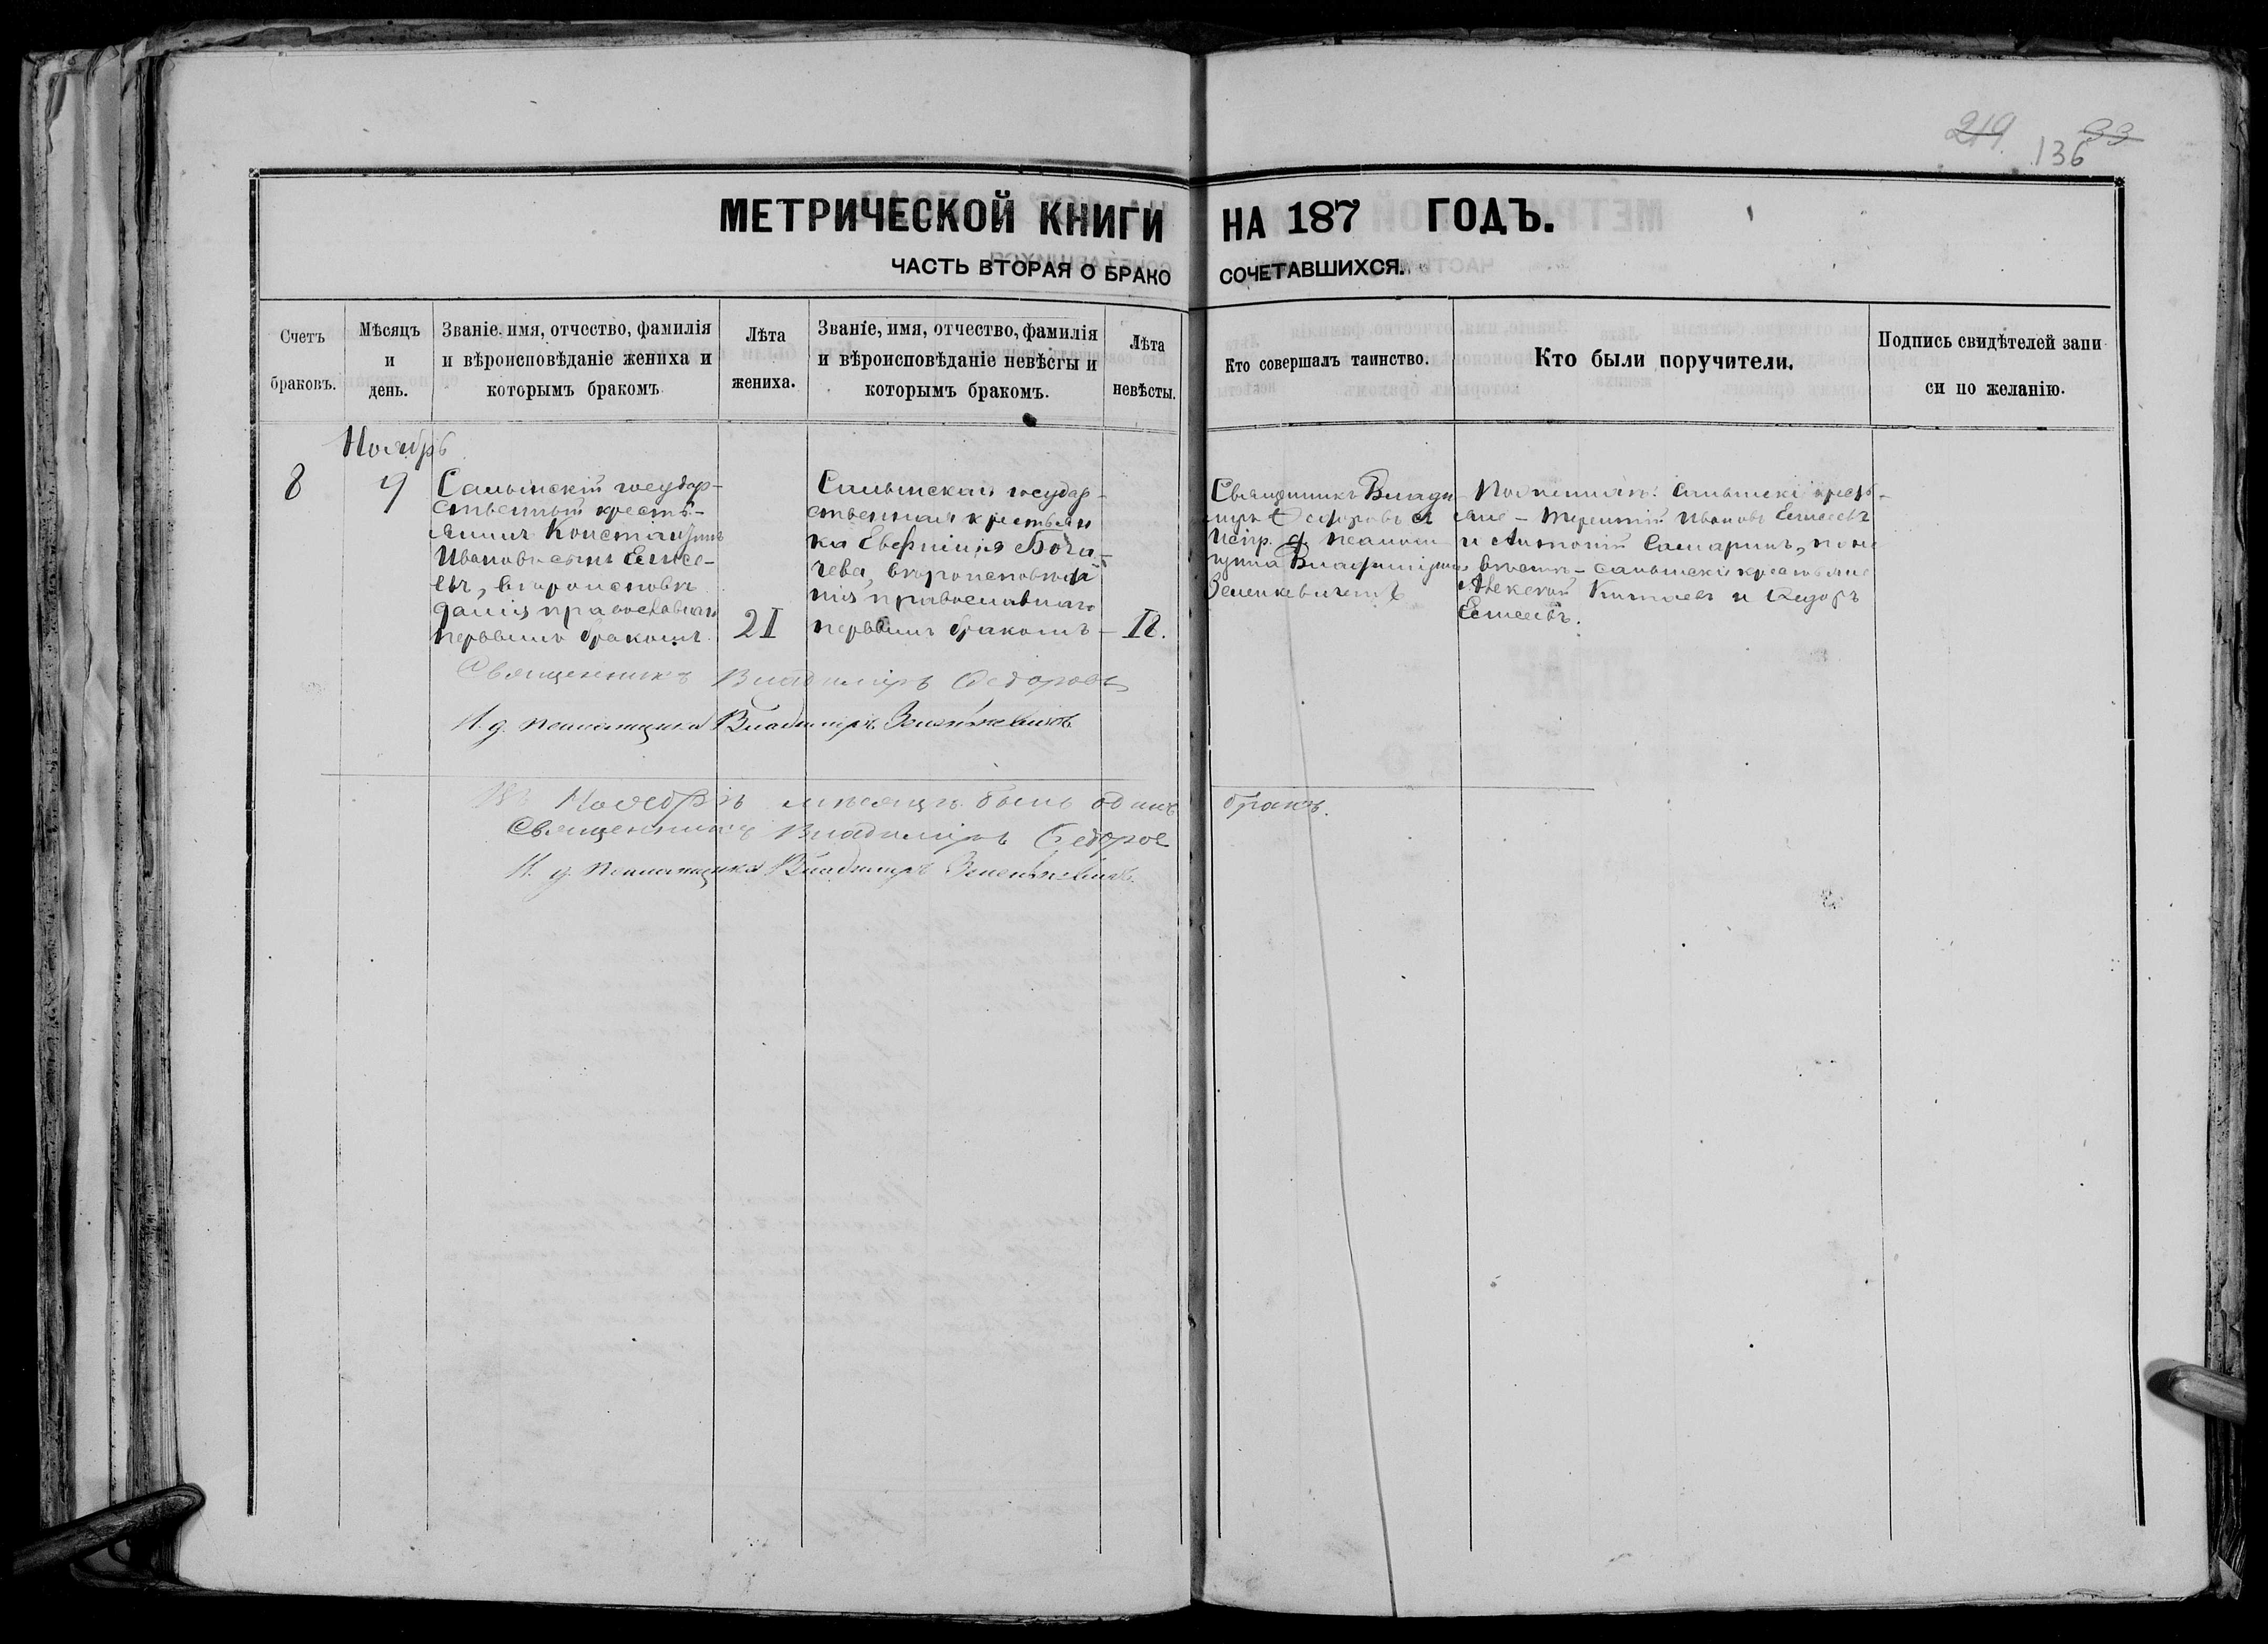 219 33
136
МЕТРИЧЕСКОЙ КНИГИ НА 187 ГОДЪ.
ЧАСТЬ ВТОРАЯ О БРАКО СОЧЕТАВШИХСЯ.
Счетъ браковъ.
Мѣсяцъ и день.
Званіе, имя, отчество, фамилія
и вѣроисповѣданіе жениха и
которымъ бракомъ.
Лѣта жениха.
Званіе, имя, отчество, фамилія
и вѣроисповѣданіе невѣсты и
которымъ бракомъ.
Лѣта невѣсты.
Кто совершалъ таинство.
Кто были поручители.
Подпись свидѣтелей запи
си по желанію.
Ноябрь
8
9
государ-
ственный кресть-
янинъ Константинъ
Ивановъ сынъ Елисе-
евъ, вѣроисповѣ
данія православнаго
первымъ бракомъ.
21
государ-
ственная крестьян
ка Евфимія Бога-
чева, вѣроисповѣда
нія православнаго
первымъ бракомъ
Священникъ Влади
міръ Федоровъ съ
Испр. д. псаломщ
щика Владиміромъ
Зеленкевичемъ
По женихѣ: кресть-
яне - Терентій Ивановъ Елисеевъ
и Антоній Самаринъ, по не
вѣстѣ - крестьяне
Алексѣй Китаевъ и Ѳедоръ
Елисеевъ.
Священникъ Владиміръ Федоровъ
И. д. псаломщика Владимиръ Зеленкевичъ
Въ Ноябрѣ мѣсяцѣ былъ одинъ бракъ.
Священникъ Владиміръ Федоров
И. д. псаломщика Владимиръ Зеленкевичъ.